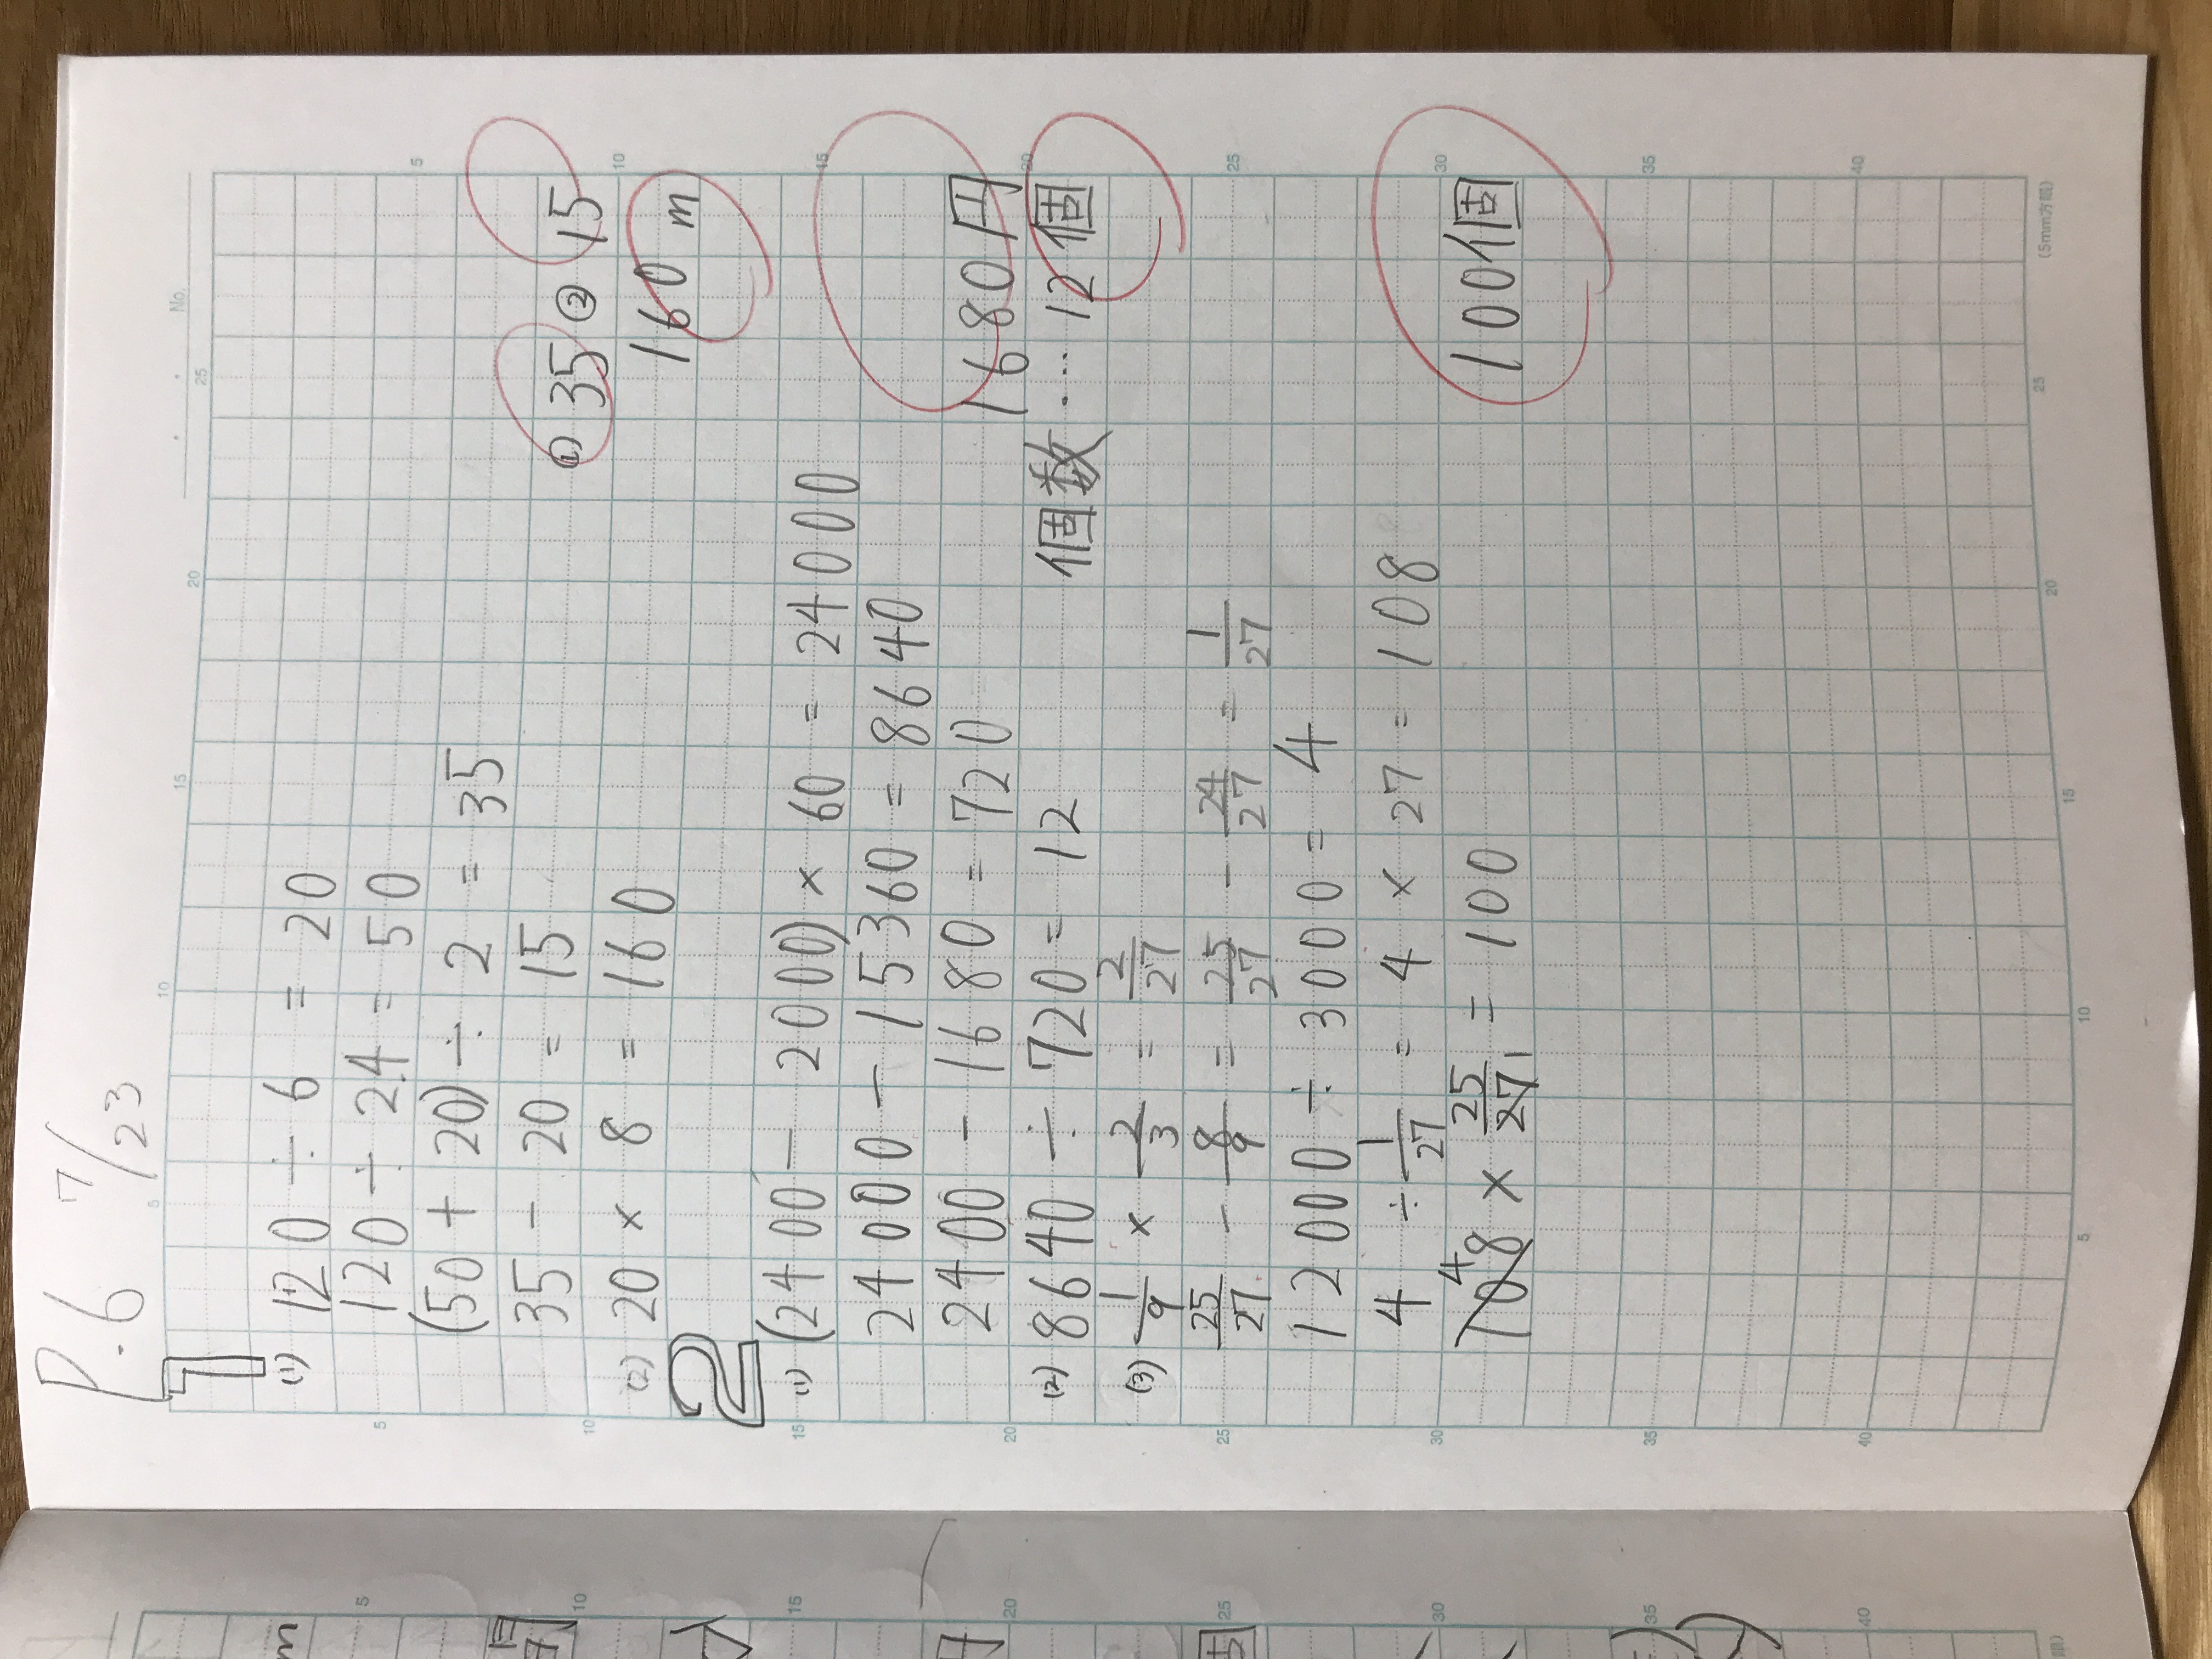 P.6 7/23
No.
1
(1) 120 ÷ 6 = 20
120 ÷ 2.4 = 50
(50 + 20) ÷ 2 = 35
35 - 20 = 15 ① 35 ② 15
(2) 20 × 8 = 160 160 m
2
(1) (2400 - 2000) × 60 = 24000
24000 - 15360 = 8640
2400 - 1680 = 720 1680円
(2) 8640 ÷ 720 = 12 個数 .... 12個
(3) 1/9 × 2/3 = 2/27
25/27 - 8/9 = 25/27 - 24/27 = 1/27
12000 ÷ 3000 = 4
4 ÷ 1/27 = 4 × 27 = 108
108 4 × 25/27 1 = 100 100個
(5mm方眼)